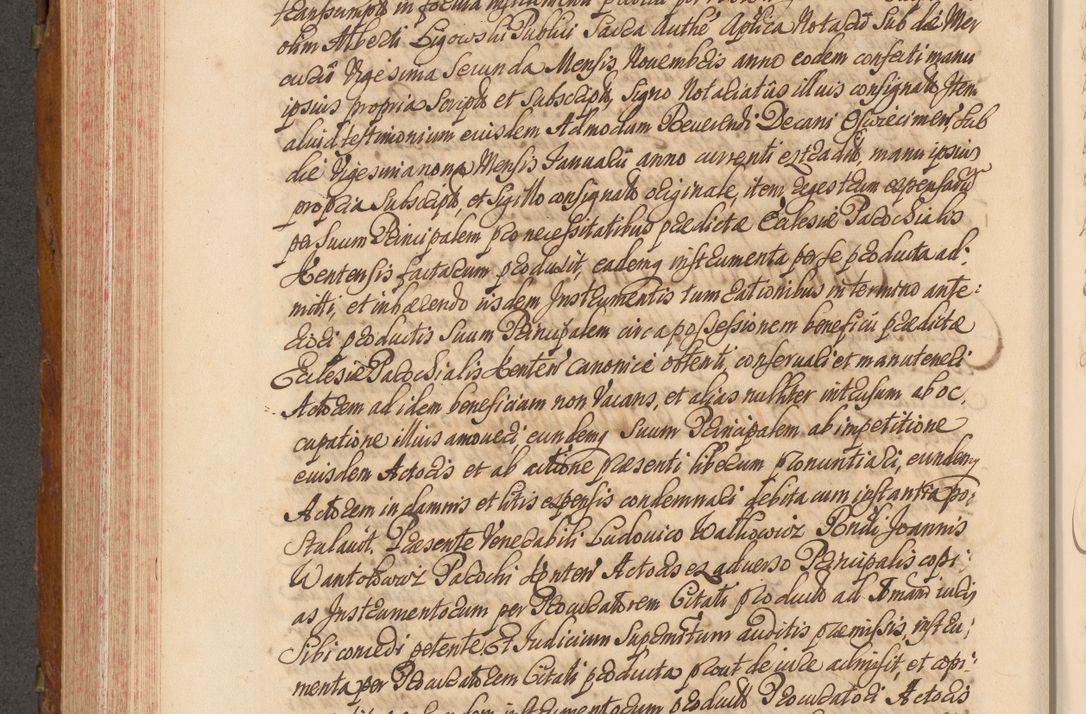 transsumpto in
olim Alberti Ligowski Publici Sacra Authe Aplica Notarii Sub die Mer
curii Vigesima Secunda Mensis Novembris anno eodem confecti manu
ipsius propria Scripto et Subscripto, Signo Notariatus illius consignato Item
aliud testimonium eiusdem Admodum Reverendi Decani Osviecimen, Sub
die Vigesimanona Mensis Januarii anno currenti extradito, manu ipsius
propria Subscripto, et Sigillo consignato originale, item regestrum expensarum
per Suum Principalem pro necessitatibus prædictæ Ecclesiæ Parochialis
Kentensis factarum produxit, eademq instrumenta per se producta ad-
mitti, et inhærendo iisdem Instrumentis tum rationibus in termino ante-
riori productis Suum Principalem circa possessionem beneficii prædictæ
Ecclesiæ Parochialis Kenten canonice obtenti, conservari et manuteneri
Actorem ad idem beneficium non Vacans, et alias nulliter intrusum ab oc,
cupatione illius amoveri eundemq Suum Principalem ab impetitione
eiusdem Actoris et ab actione præsenti liberum pronuntiari, eundemq
Actorem in damnis et litis expensis condemnari debita cum instantia po-
stulavit, Præsente Venerabili Ludovico Walkowicz Pondi Joannis
Wantolowicz Parochi Kenten Actoris ex adverso Principalis copi-
as Instrumentorum per Procuratorem Citati producto ad
Sibi concedi petente. Et Judicium Supremum auditis præmissis, instru-
menta per Procuratorem Citati producta prout de iure admisit, et copi-
producto Procuratori Actoris